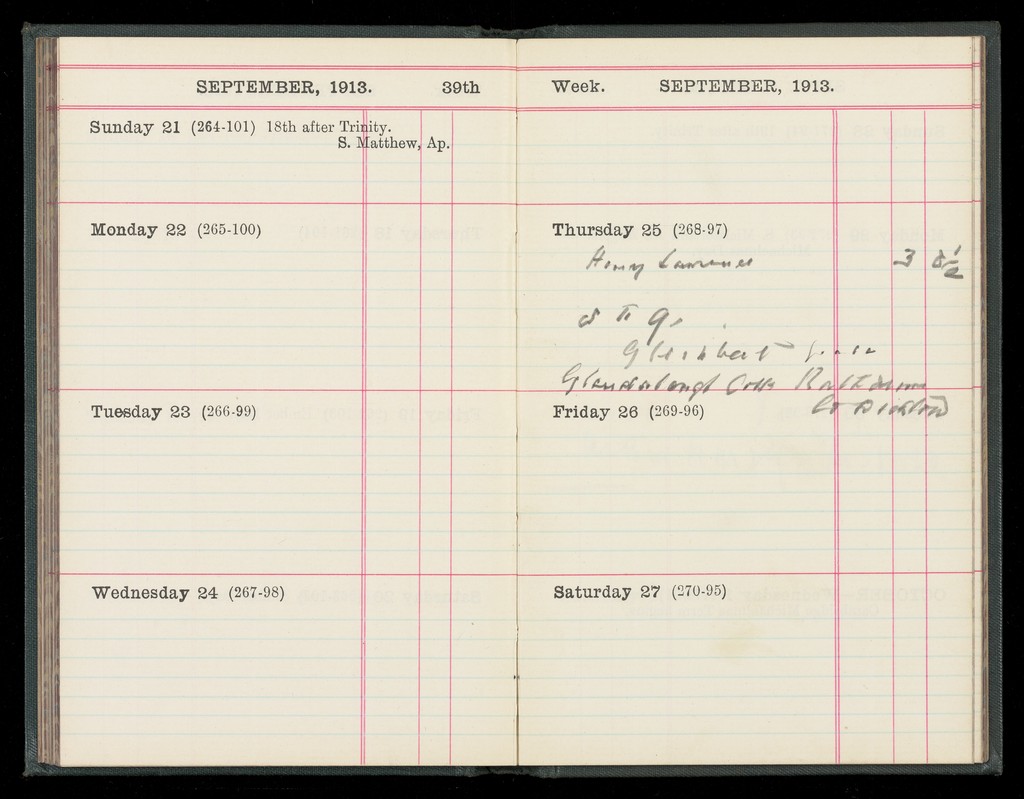 SEPTEMBER, 1913. 39th
Sunday 21 (264-101) 18th after Trinity.
S. Matthew, Ap.
Monday 22 (265-100)
Tuesday 23 (266-99)
Wednesday 24 (267-98)
Week. SEPTEMBER, 1913.
Thursday 25 (268-97)
Henry Lawrence 3 8½
Friday 26 (269-96)
Co Wicklow
Saturday 27 (270-95)